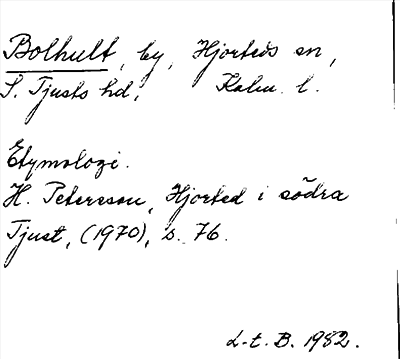 Bolhult, by, Hjorteds sn,
S. Tjusts hd, Kalm. l.
Etymologi.
H. Petersson, Hjorted i södra
Tjust, (1970), s. 76.
L-t. B. 1982.